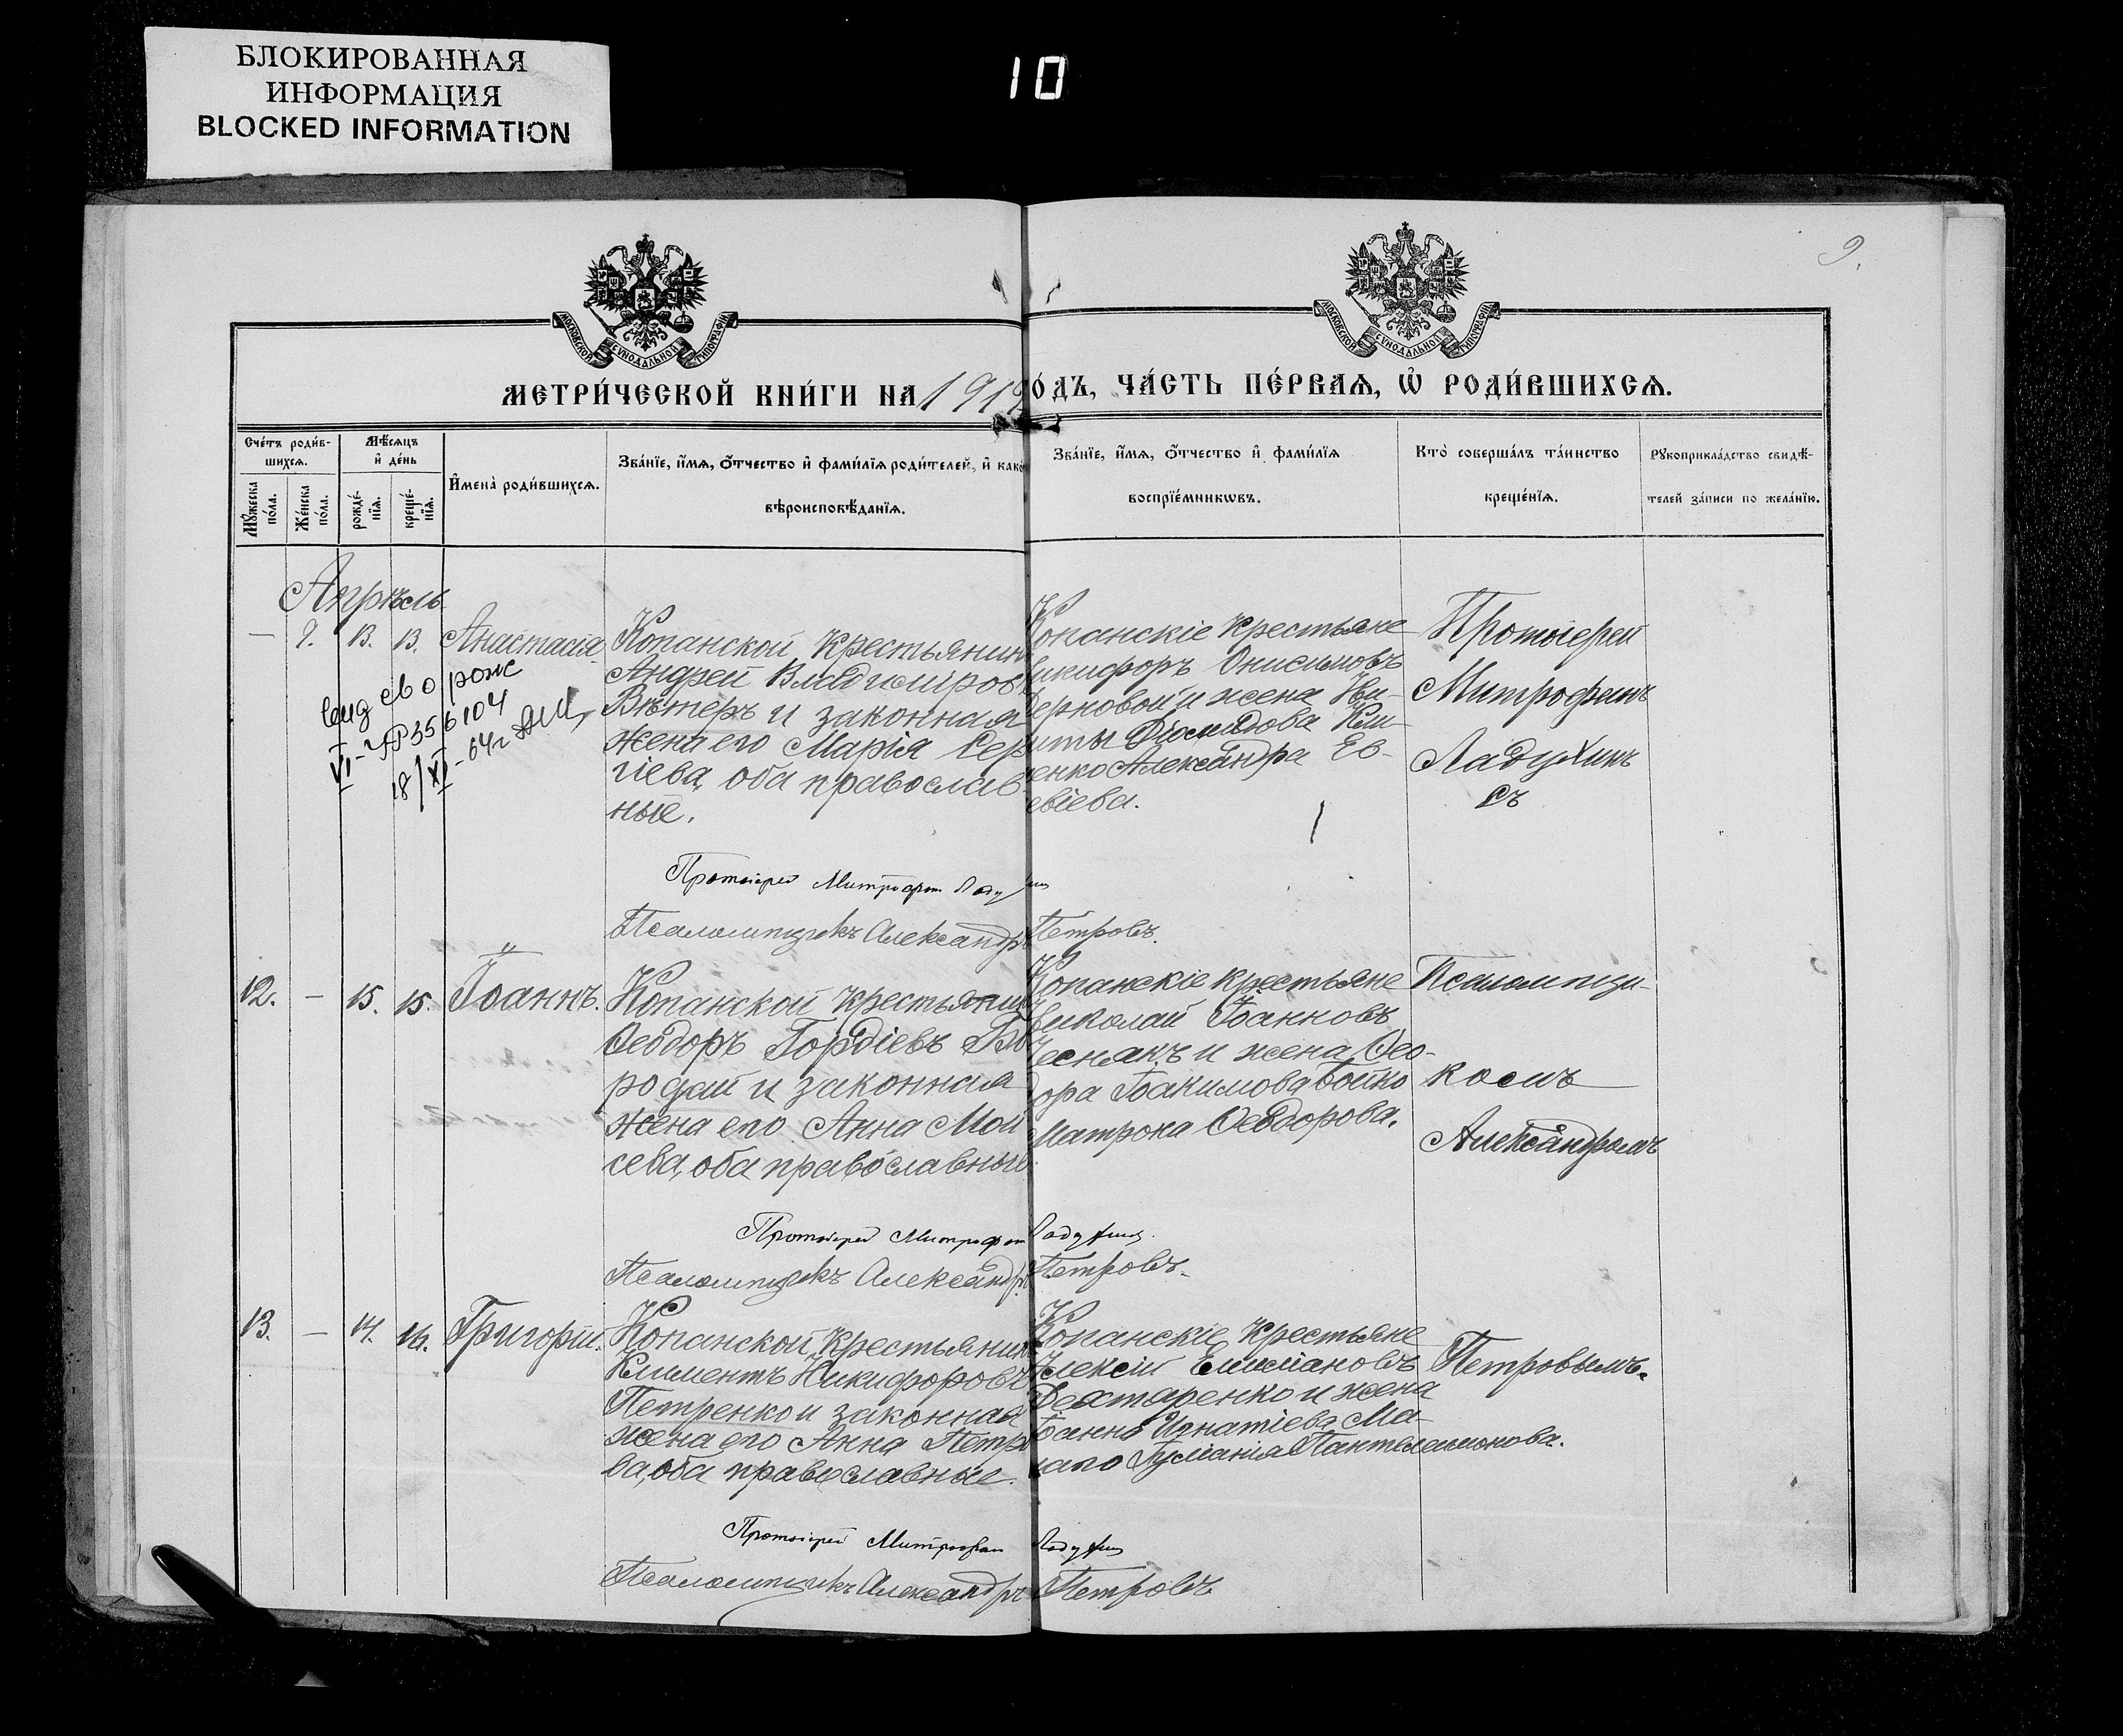 БЛОКИРОВАННАЯ
ИНФОРМАЦИЯ
BLOCKED INFORMATION
10
9.
МОСКОВСКОЙ СУНОДАЛЬНОЙ ТИПОГРАФІИ
МОСКОВСКОЙ СУНОДАЛЬНОЙ ТИПОГРАФІИ
МЕТРИ́ЧЕСКОЙ КНИ́ГИ НА 1919
О́ДЪ, ЧА́СТЬ ПЕ́РВАѦ, Ѡ РОДИ́ВШИХСѦ.
Сче́тъ роди́в-
шихсѧ.
Мѣ́сѧцъ
и҆ де́нь
Мꙋ́жеска
по́ла.
Же́нска
по́ла.
рожде́-
нїѧ.
креще́-
нїѧ.
И҆мена̀ роди́вшихсѧ.
Зва́нїе, и҆́мѧ, о҆́тчество и҆ фами́лїѧ роди́телей, и҆ како
вѣроисповѣ́данїѧ.
Зва́нїе, и҆́мѧ, о҆́тчество и҆ фами́лїѧ
воспрїе́мникѡвъ.
Кто̀ соверша́лъ та́инство
креще́нїѧ.
Рꙋкоприкла́дство свидѣ́-
телей за́писи по жела́нїю.
Апрѣль
— 9. 13. 13. Анастасія
Копанской крестьянин
Андрей Владиміров
Вѣтеръ и законная
жена его Марія Сер
гіева, оба православ
ные.
Копанскіе крестьяне
икифоръ Онисимовъ
ерновой и жена Ни-
киты Діомидова Кли-
енко Александра Ев-
евіева.
Протоіерей
Митрофанъ
Ладухинъ
съ
св о рож
VI-УР 356104
18/XI-64г
Протоіерей Митрофан Ладу хин
Псаломщикъ Александръ Петровъ.
12. — 15. 15. Іоаннъ.
Копанской крестьянин
Ѳеодоръ Гордіевъ Бо
родай и законная
жена его Анна Мои
сева, оба православные
Копанскіе крестьяне
Николай Іоанновъ
Чеснякъ и жена Ѳео-
дора Іоакимова Бойко
Матрона Ѳеодорова.
Псаломщи-
комъ
Александромъ
Протоіерей Митрофан Ладухин.
Псаломщикъ Александръ Петровъ.
13. — 14. 14. Григорій.
Копанской крестьянин
Климентъ Никифоровъ
Петренко и законная
жена его Анна Петро
ва, оба православные.
Копанскіе крестьяне
Алексій Емиліановъ
Дехтаренко и жена
Іоанна Игнатіева Ма-
Іуліанія Пантелеимонова.
Петровымъ.
Протоіерей Митрофан Ладухин
Псаломщикъ Александръ Петровъ